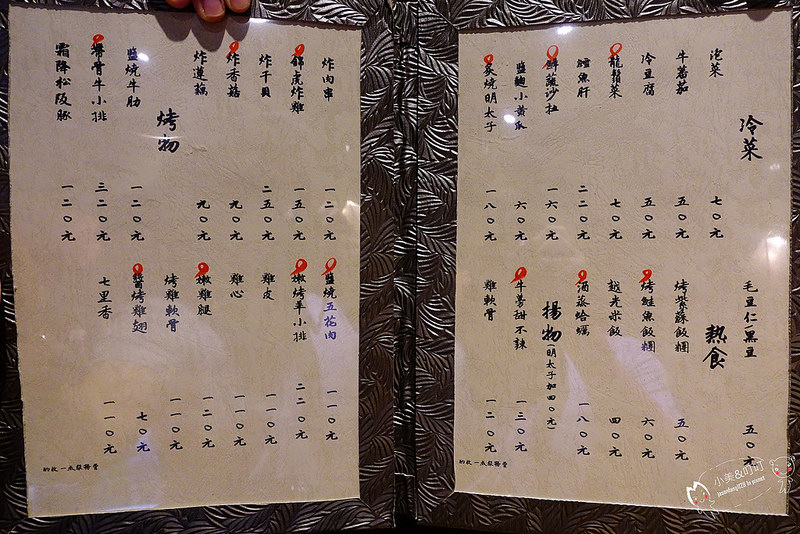 冷菜
泡菜 七〇元
牛蕃茄 五〇元
冷豆腐 五〇元
龍鬚菜 七〇元
鱈魚肝 二二〇元
鮮蔬沙拉 一六〇元
鹽麴小黃瓜 六〇元
炙燒明太子 一八〇元
毛豆仁/黑豆 五〇元
熱食
烤紫蘇飯糰 五〇元
烤鮭魚飯糰 六〇元
越光米飯 四〇元
酒蒸蛤蠣 一八〇元
揚物(明太子加四〇元)
牛蒡甜不辣 一三〇元
雞軟骨 一二〇元
酌收一成服務費
炸肉串 一二〇元
錦虎炸雞 一五〇元
炸干貝 二五〇元
炸香菇 九〇元
炸蓮藕 九〇元
烤物
鹽燒牛肋 一二〇元
帶骨牛小排 三二〇元
霜降松阪豚 一二〇元
鹽燒五花肉 一一〇元
嫩烤羊小排 二二〇元
雞皮 一一〇元
雞心 一一〇元
嫩雞腿 一二〇元
烤雞軟骨 一一〇元
醬烤雞翅 七〇元
七里香 一一〇元
酌收一成服務費
小美&叮叮